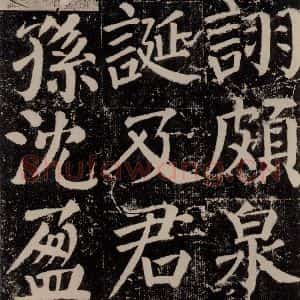 詡頗泉
誕及君
孫沈盈
Shufawang.CN